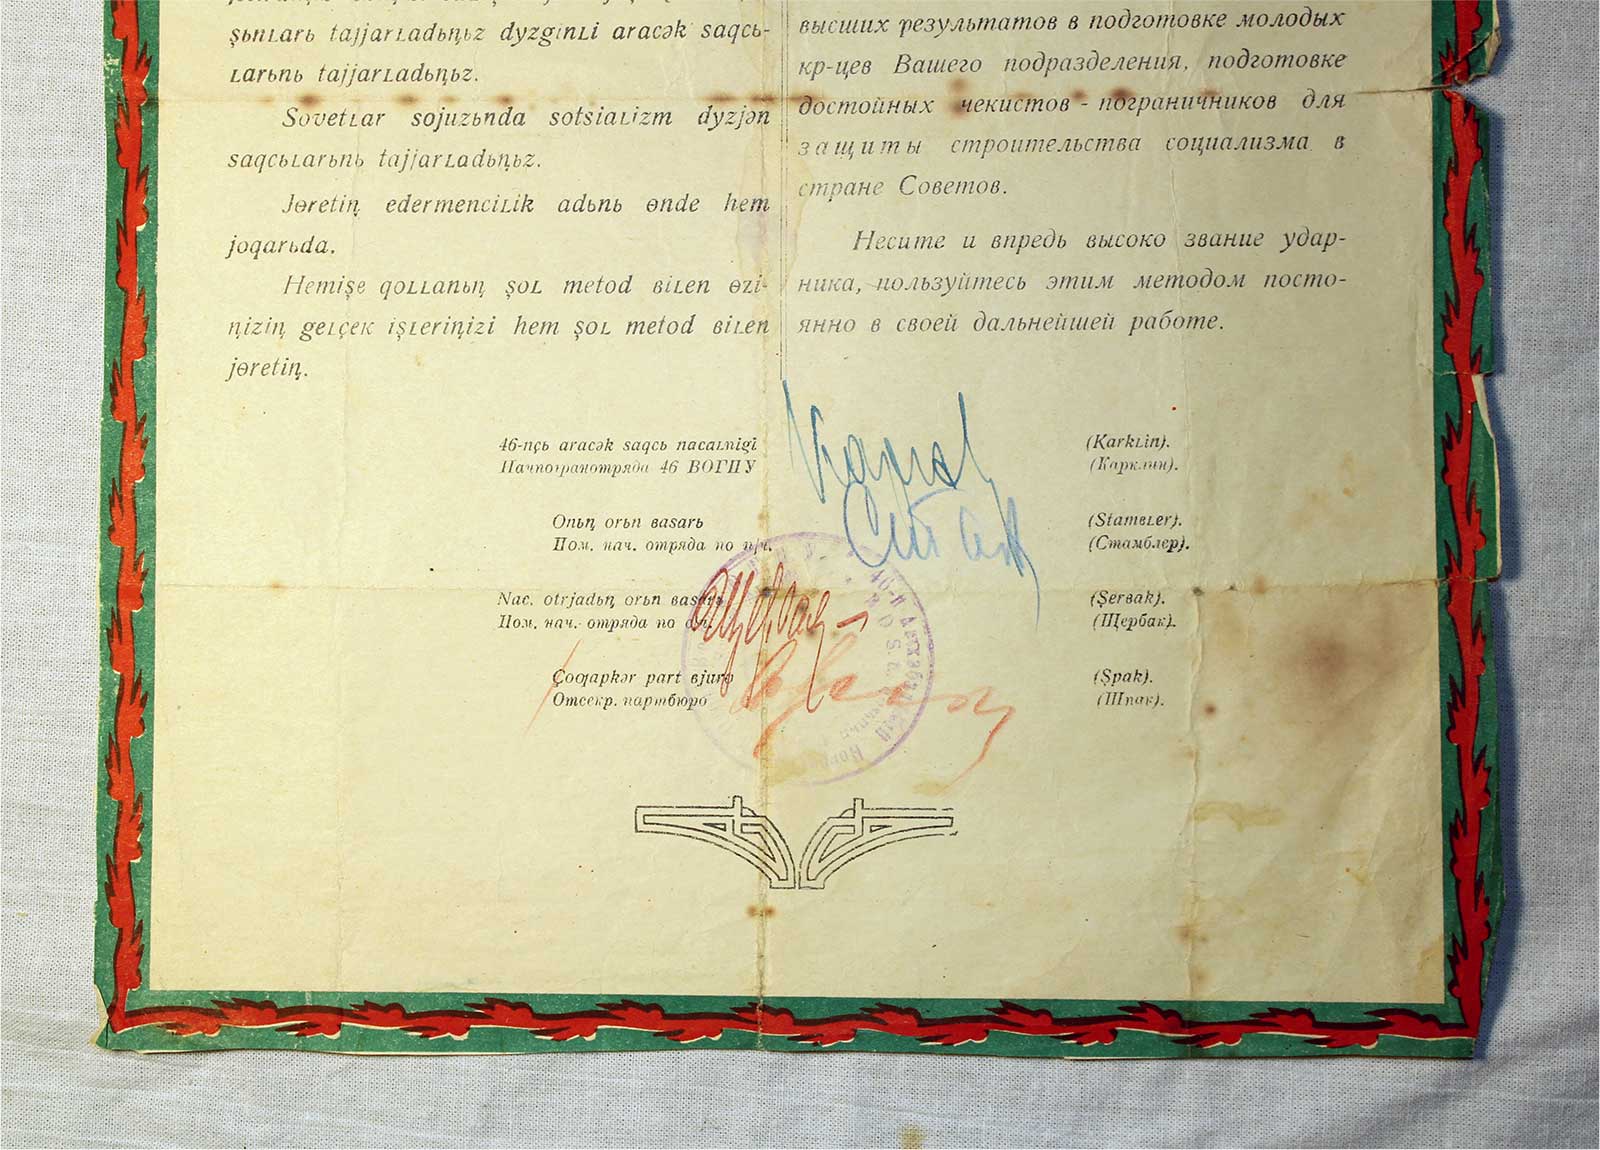 şьnʟarь tajjarʟadьꞑьz dyzginʟi aracək saqcь-
ʟarьnь tajjarʟadьꞑьz.
Sovetʟar sojuzьnda sotsiaʟizm dyzjən
saqcьʟarьnь tajjarʟadьꞑьz.
Jɵretiꞑ edermenciʟik adьnь ɵnde hem
joqarьda.
Hemişe qoʟʟanьꞑ şoʟ metod ʙiʟen ɵzi-
ꞑiziꞑ geʟçek işʟeriꞑizi hem şoʟ metod ʙiʟen
jɵretiꞑ.
высших результатов в подготовке молодых
кр-цев Вашего подразделения, подготовке
достойных чекистов - пограничников для
защиты строительства социализма в
стране Советов.
Несите и впредь высоко звание удар-
ника, пользуйтесь этим методом посто-
янно в своей дальнейшей работе.
46-nçь aracək saqcь nacaʟnigi (Karkʟin).
Начпогранотряда 46 ВОГПУ (Карклин).
Onьꞑ orьn ʙasarь (Stamʙʟer).
Пом. нач. отряда по п/ч. (Стамблер).
Nac. otrjadьꞑ orьn ʙasarь (Şerʙak).
Пом. нач. отряда по (Щербак).
Çoƣapkər part ʙjuro (Şpak).
Отсекр. партбюро (Шпак).